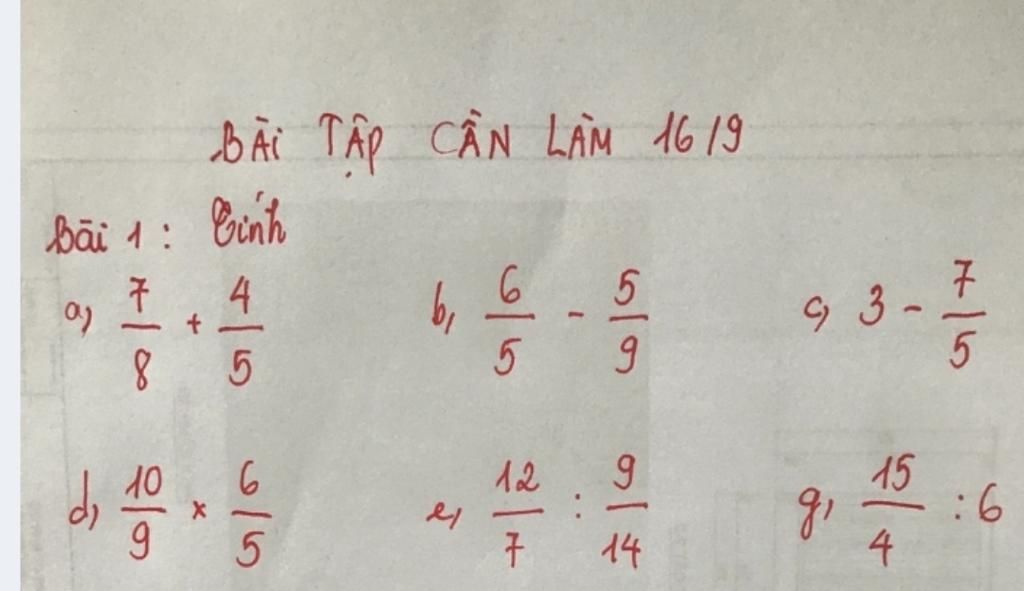 BÀI TẬP CẦN LÀM 16/9
Bài 1 : Tính
a, 7/8 + 4/5 b, 6/5 - 5/9 c, 3 - 7/5
d, 10/9 x 6/5 e, 12/7 : 9/14 g, 15/4 : 6